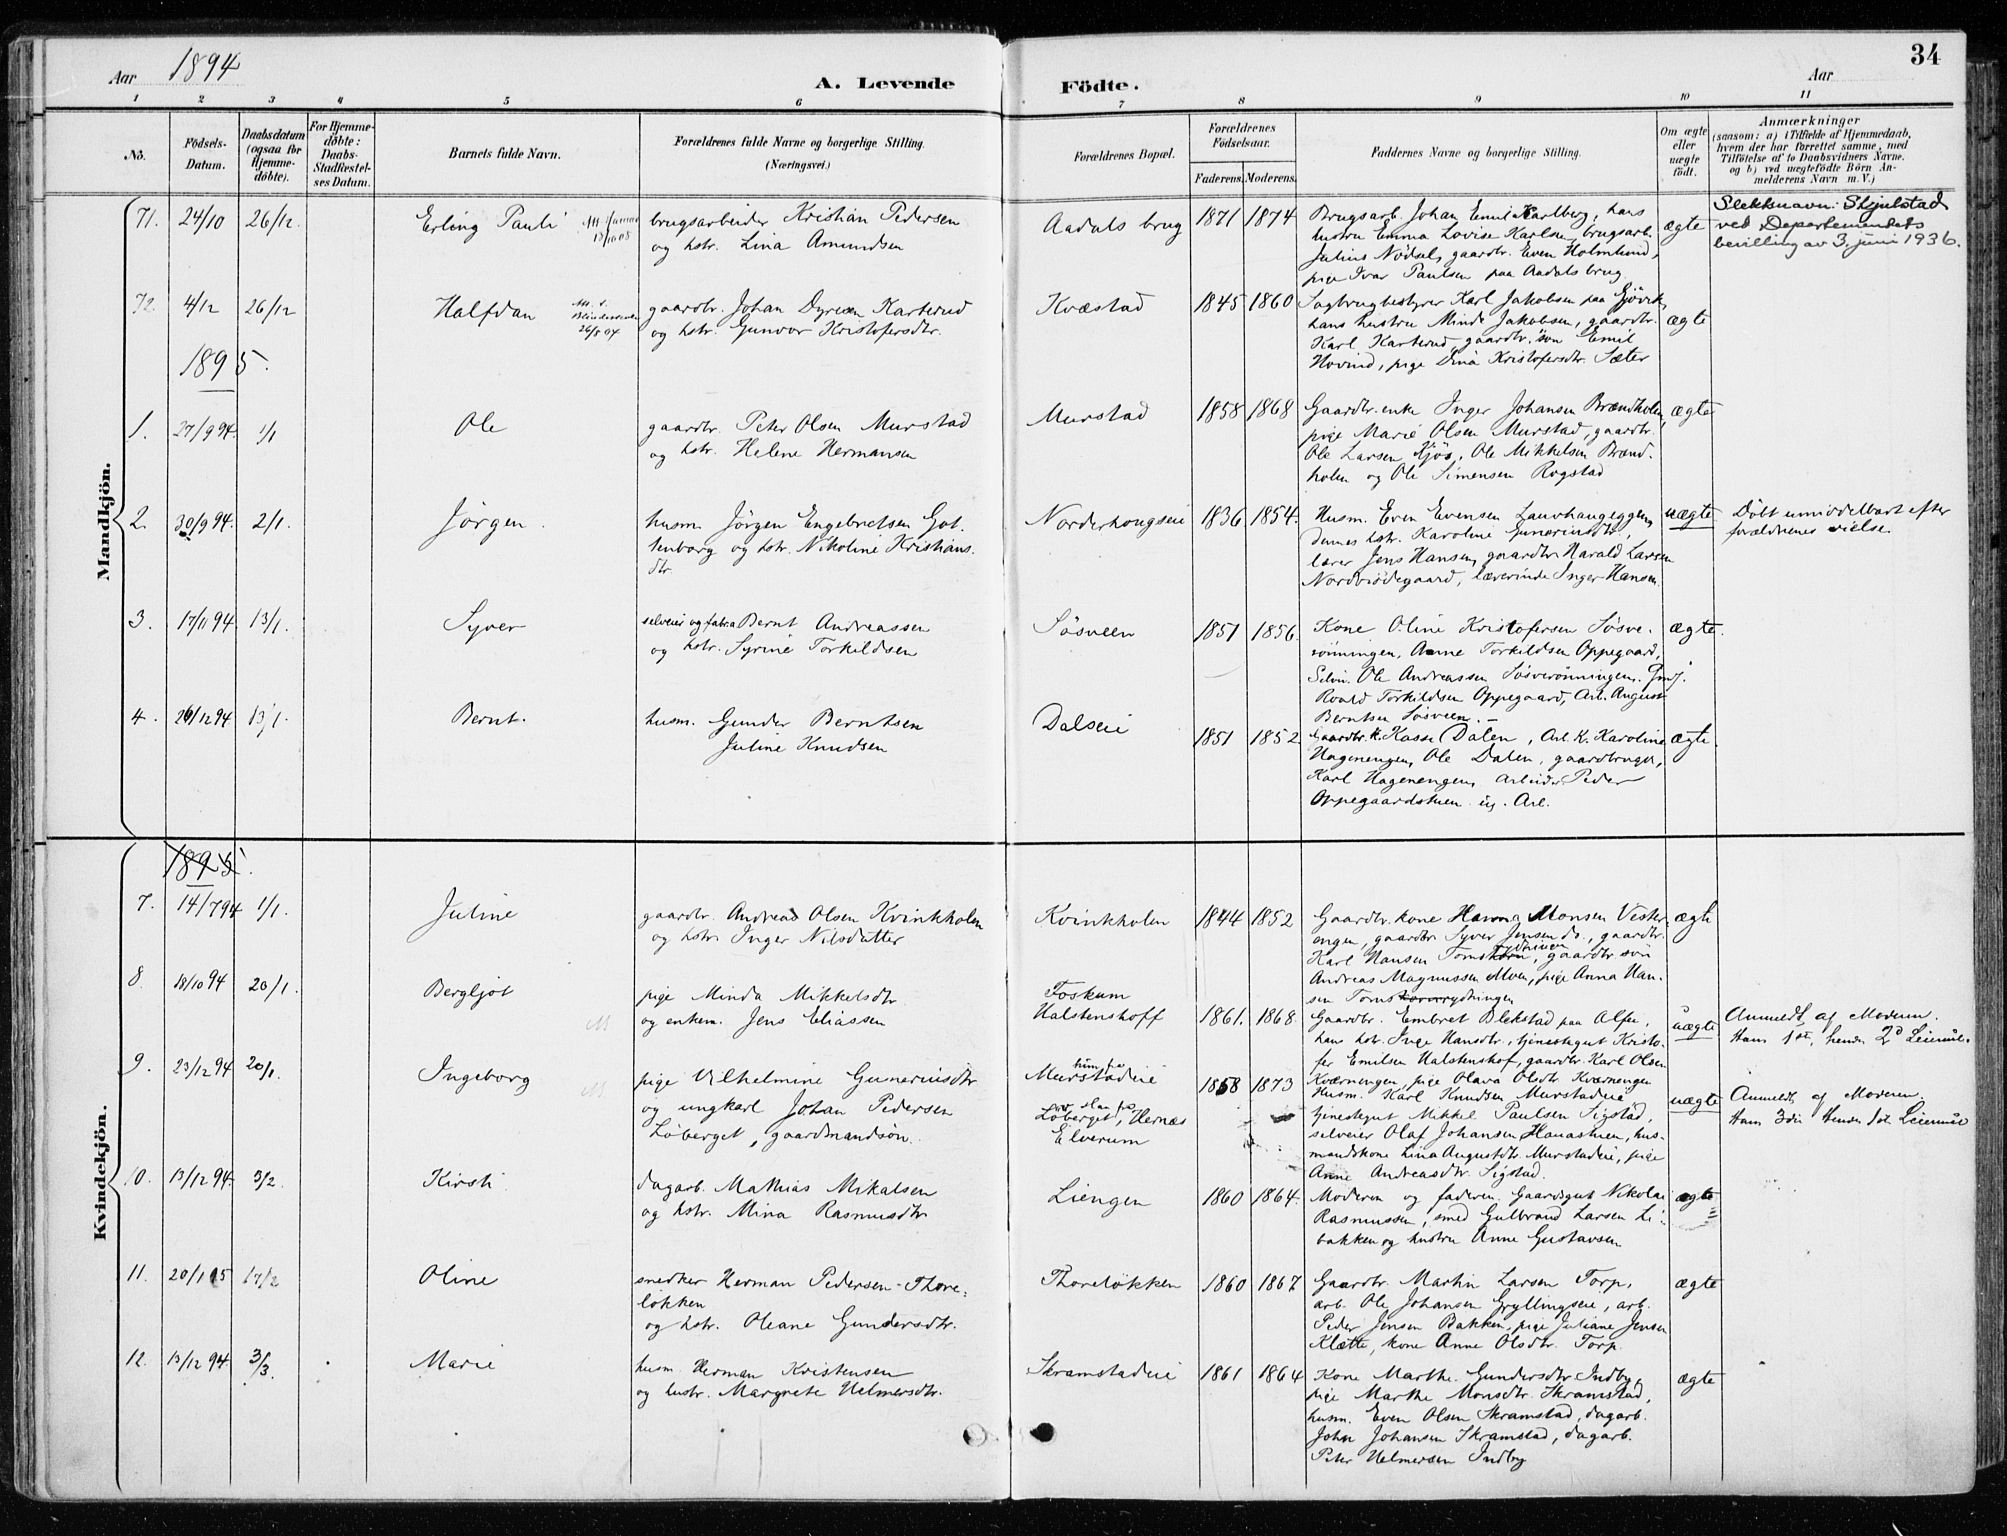 Aar 1894
A. Levende Födte.
Aar
34
1 2 3 4 5 6 7 8 9 10 11
No.
Födsels-Datum.
Daabsdatum (ogsaa för Hjemme-döbte).
For Hjemme-döbte: Daabs-Stadfæstel-ses Datum.
Barnets fulde Navn.
Forældrenes fulde Navne og borgerlige Stilling.
(Næringsvei.)
Forældrenes Bopæl.
Forældrenes Födselsaar.
Faderens. Moderens.
Faddernes Navne og borgerlige Stilling.
Om ægte eller uægte födt.
Anmærkninger
(saasom: a) i Tilfælde af Hjemmedaab,
hvem der har forrettet samme, med
Tilföielse af to Daabsvidners Navne.
og b) ved uægtefödte Börn An-
melderens Navn m. V.)
Mandkjön.
71. 24/10 26/12. Erling Pauli
brugsarbeider Kristian Pedersen
og hstr. Lina Amundsen
Aadals brug 1871 1874
Brugsarb. Johan Emil Karlberg, hans
hustru Emma Lovise Karlsen, brugsarb.
Julius Nödsel, gaardbr. Even Holmlund,
pige Ivar Paulsen paa Aadals brug
ægte
Slektnavn: Skjulstad
ved Departementets
bevilling av 3. juni 1936.
72. 4/12 26/12 Halfdan
gaardbr. Johan Dyresen Karterud
og hstr. Gunvor Kristofersdtr.
Kvæstad 1845 1860
Sagbrugbestyrer Karl Jakobsen paa Gjövik,
hans hustru Minda Jakobsen, gaardbr.
Karl Karterud, gaardbr. sön Emil
Hovind, pige Dina Kristofersdtr. Sæter
ægte
1895.
1. 27/9 94. 1/1 Ole
gaardbr. Peter Olsen Murstad
og hstr. Helene Hermansen
Murstad 1858 1868
Gaardbr. enke Inger Johansen Brændholen,
pige Marie Olsen Murstad, gaardbr.
Ole Larsen Kjös, Ole Mikkelsen Brænd-
holen og Ole Simensen Rogstad
ægte
2. 30/9 94. 2/1. Jörgen.
husm. Jörgen Engebretsen Got-
tenborg og hstr. Nikoline Kristians-
dtr
Norderhougseie 1836 1854.
Husm. Even Evensen Lauvhaugeggen,
dennes hstr. Karoline Gunerinsdtr,
lærer Jens Hansen, gaardbr. Harald Larsen
Nordviödegaard, lærerinde Inger Hansen
uægte
Döbt umiddelbart efter
forældrenes vielse.
3. 17/11 94 13/1. Syver
selveier og fabr.a Bernt Andreassen
og hstr. Syrine Torkildsen
Sösveen 1851 1856.
Kone Oline Kristofersen Sösve-
rönningen, Anne Torkildsen Oppegaard,
Selvei. Ole Andreassen Sösverönningen,
Roald Torkildsen Oppegaard, Arb. August
Berntsen Sösveen. –
ægte.
4. 26/12 94 13/1. Bernt.
husm. Gunder Berntsen
Juline Knudsen
Dalseie 1851 1852
Gaardbr. k. Kasse Dalen, Arb. K. Karoline
Hagenengen, Ole Dalen, gaardbruger,
Karl Hagenengen, Arbeider Peder
Oppegaardstuen. ug. Arb.
ægte.
Kvindekjön.
1895.
7. 14/7 94 1/1. Juline
gaardbr. Andreas Olsen Kvinkholen
og hstr. Inger Nilsdatter
Kvinkholen 1844 1852
Gaardbr. kone Hanna Monsen Vester-
engen, gaardbr. Syver Jensen do., gaardbr.
Karl Hansen Tomsrydningen, gaardbr. sön
Andreas Magnussen Moen, pige Anna Han-
sen Tomsrydningen
ægte
8. 18/10 94 20/1. Bergljot
pige Minda Mikkelsdtr
og enkem. Jens Eliassen
Foskum
Halstenshoff 1861. 1868.
Gaardbr. Embret Blekstad paa Alfu,
hans hstr. Inge Hansdtr., tjenestegut Kristo-
fer Emilsen Halstenshof, gaardbr. Karl Olsen
Kværningen, pige Olava Olsdtr. Kværningen
uægte
Anmeldt af Moderen.
Hans 1ste, hendes 2d Leiermaal.
9. 23/12 94 20/1. Ingeborg
pige Vilhelmine Gunerinsdtr
og ungkarl Johan Pedersen
Löberget, gaardmandsön.
Murstadeie
Löberget, Hernæs
Elverum
1858 1873
Husm. Karl Knudsen Murstadeie
tjenestegut Mikkel Paulsen Sigstad,
selveier Olaf Johansen Hauastuen, hus-
mandskone Lina Augustdtr. Murstadeie, pige
Anne Andreasdtr. Sigstad.
uægte
Anmeldt af Moderen.
Hans 3die Hendes 1ste Leiermaal
10. 13/12 94. 3/2. Kirsti
dagarb. Mathias Mikalsen
og hstr. Mina Rasmusdtr.
Liengen 1860 1864.
Moderen og faderen. Gaardsgut Nikolai
Rasmussen, smed Gulbrand Larsen Li-
bakken og hustru Anne Gustavsen
ægte
11. 20/1 95 17/2 Oline
snedker Herman Pedersen Thore-
lökken
og hstr. Oleane Gundersdtr.
Thorelökken 1860 1867
Gaardbr. Martin Larsen Torp,
arb. Ole Johansen Gryllingseie, arb.
Peder Jensen Bakken, pige Juliane Jensen
Klætte, kone Anne Olsdtr. Torp.
ægte
12. 13/12 94. 3/3. Marie
husm. Herman Kristensen
og hustr. Margrete Helmersdtr.
Skramstadeie 1861 1864
Kone Marthe Gundersdtr. Indby,
pige Marthe Monsdtr. Skramstad,
husm. Even Olsen Skramstad, dagarb.
John Johansen Skramstad, dagarb.
Peter Helmersen Indby
ægte